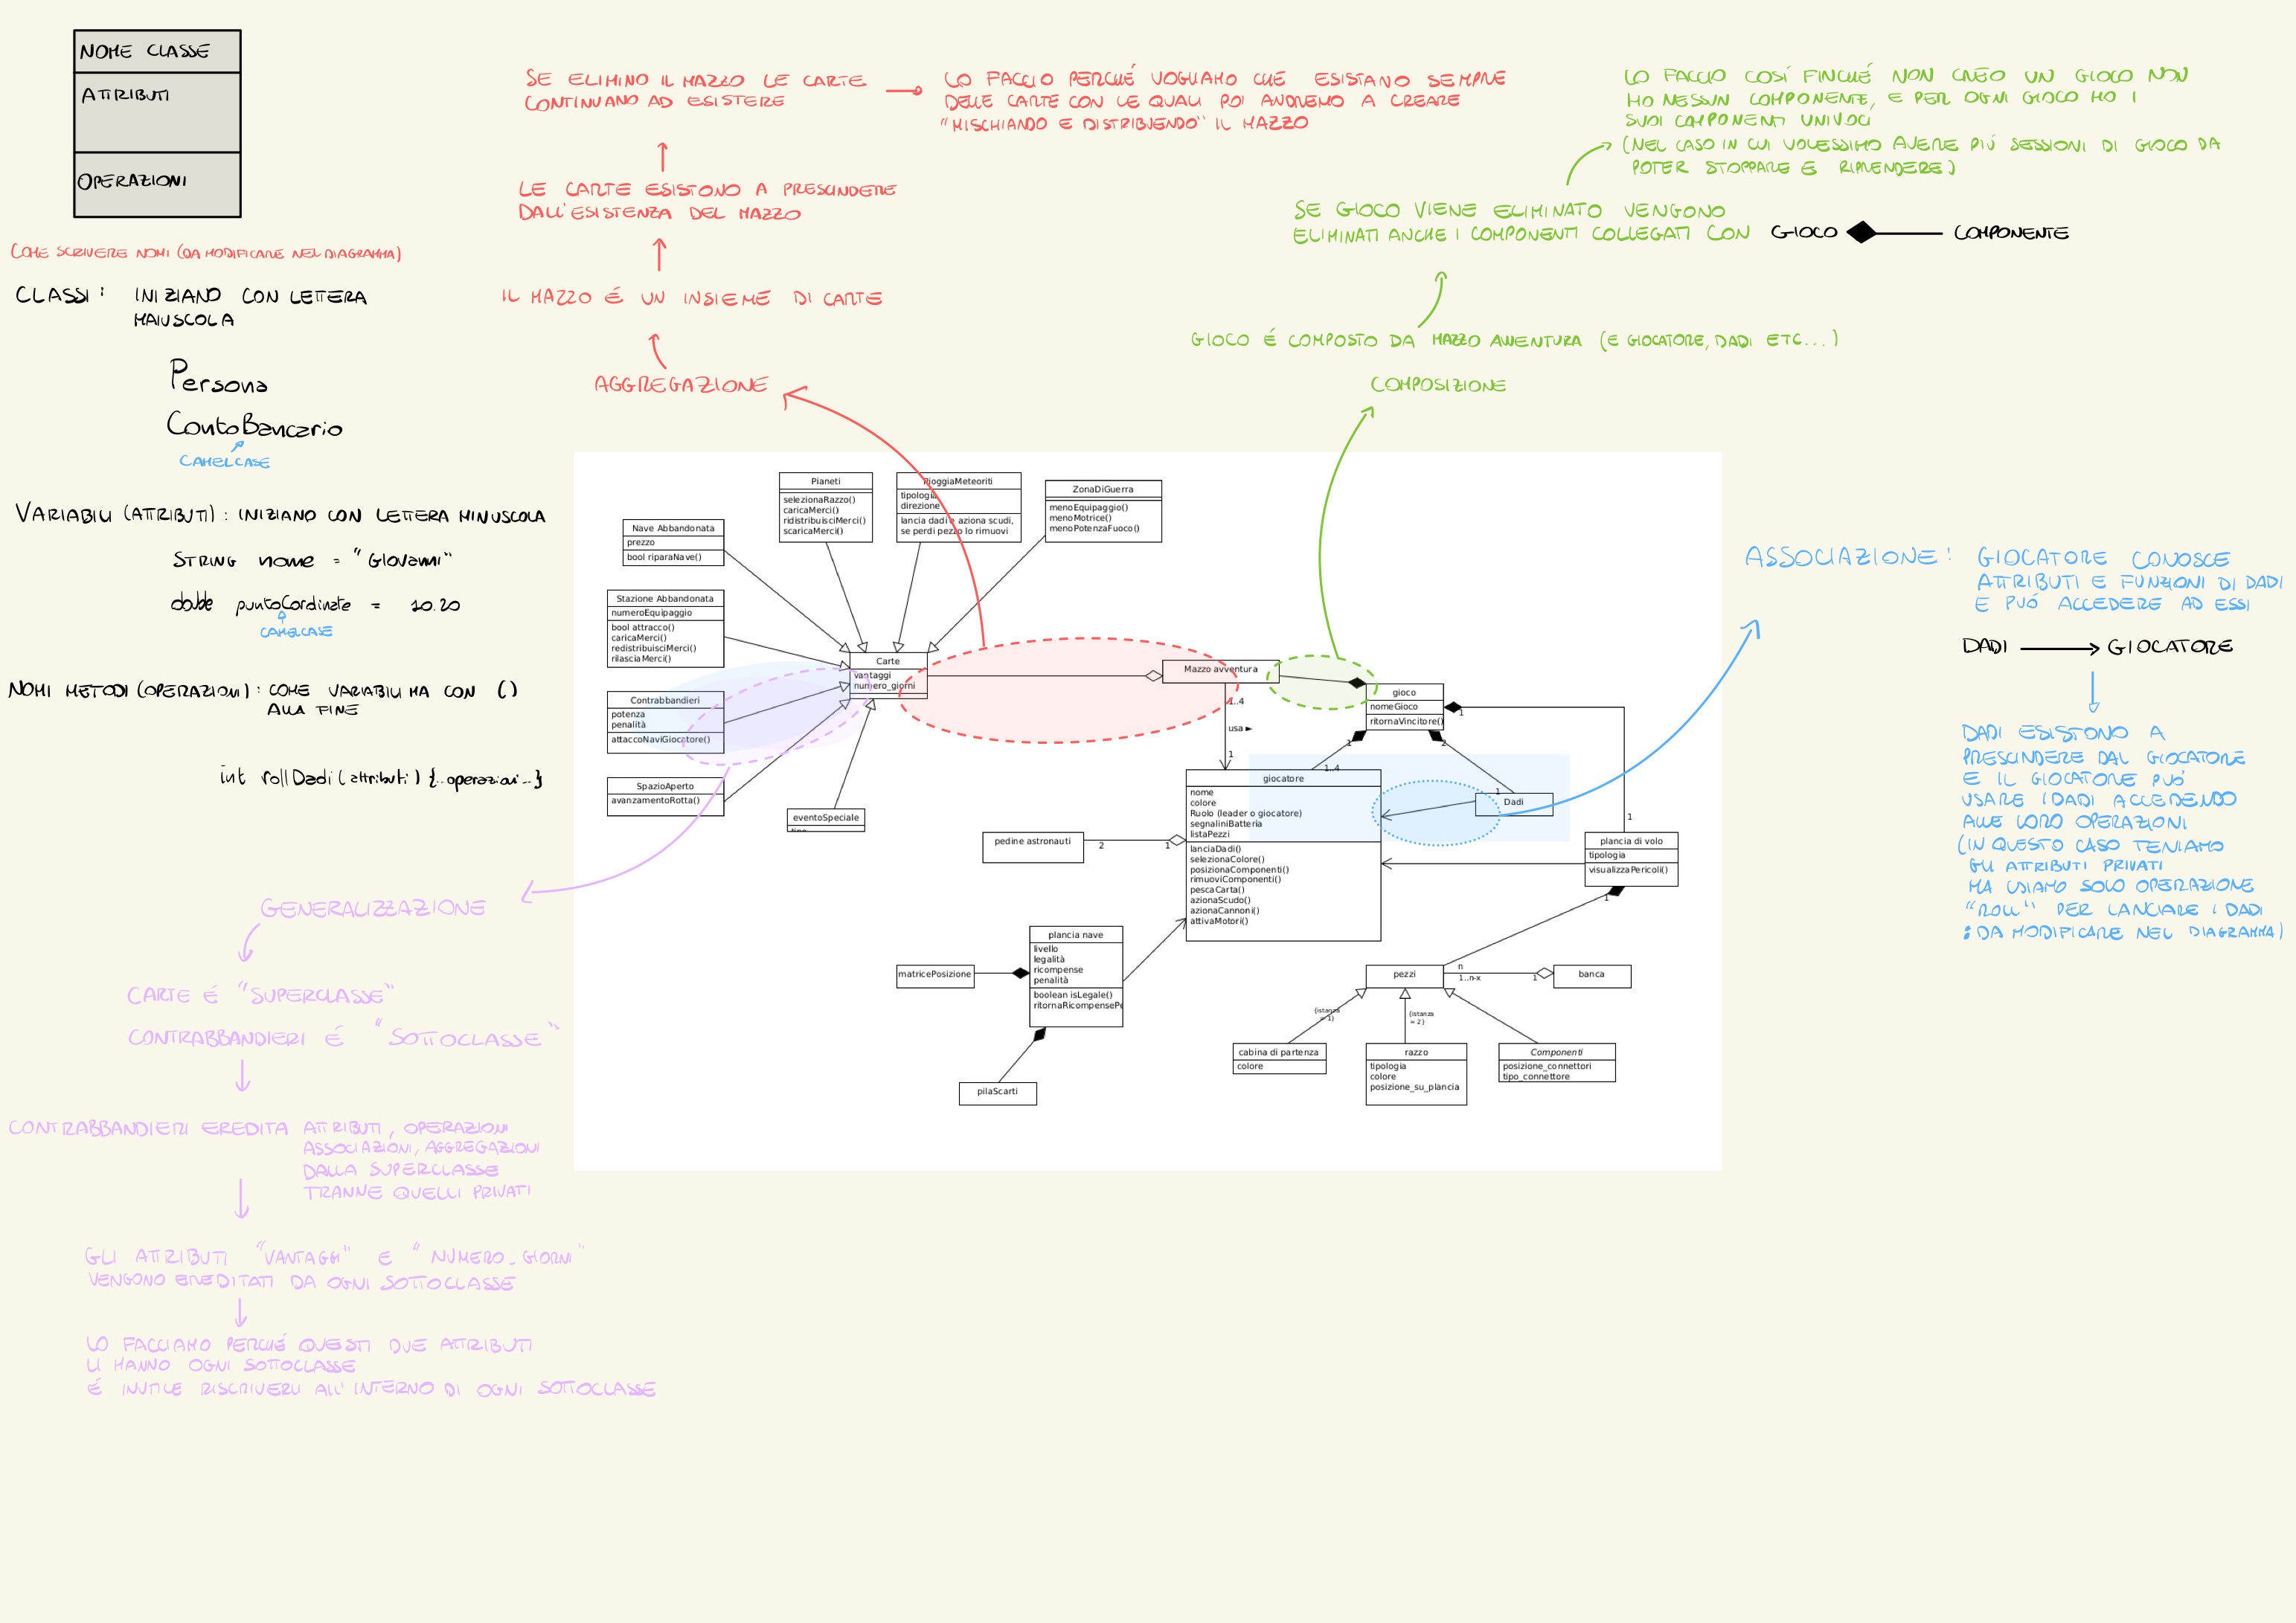 NOME CLASSE
ATTRIBUTI
OPERAZIONI
COME SCRIVERE NOMI (DA MODIFICARE NEL DIAGRAMMA)
CLASSI: INIZIANO CON LETTERA
MAIUSCOLA
Persona
ContoBancario
CAMELCASE
VARIABILI (ATTRIBUTI): INIZIANO CON LETTERA MINUSCOLA
STRING nome = "Giovanni"
double puntoCordinate = 10.20
CAMELCASE
NOMI METODI (OPERAZIONI): COME VARIABILI MA CON ()
ALLA FINE
int rollDadi (attributi) {..operazioni..}
SE ELIMINO IL MAZZO LE CARTE
CONTINUANO AD ESISTERE
LO FACCIO PERCHÉ VOGLIAMO CHE ESISTANO SEMPRE
DELLE CARTE CON LE QUALI POI ANDREMO A CREARE
"MISCHIANDO E DISTRIBUENDO" IL MAZZO
LE CARTE ESISTONO A PRESCINDERE
DALL'ESISTENZA DEL MAZZO
IL MAZZO É UN INSIEME DI CARTE
AGGREGAZIONE
LO FACCIO COSÍ FINCHÉ NON CREO UN GIOCO NON
HO NESSUN COMPONENTE, E PER OGNI GIOCO HO I
SUOI COMPONENTI UNIVOCI
(NEL CASO IN CUI VOLESSIMO AVERE PIÚ SESSIONI DI GIOCO DA
POTER STOPPARE E RIPRENDERE)
SE GIOCO VIENE ELIMINATO VENGONO
ELIMINATI ANCHE I COMPONENTI COLLEGATI CON GIOCO COMPONENTE
GIOCO É COMPOSTO DA MAZZO AVVENTURA (E GIOCATORE, DADI ETC...)
COMPOSIZIONE
Nave Abbandonata
prezzo
bool riparaNave()
Pianeti
selezionaRazzo()
caricaMerci()
ridistribuisciMerci()
scaricaMerci()
PioggiaMeteoriti
tipologia
direzione
lancia dadi e aziona scudi,
se perdi pezzo lo rimuovi
ZonaDiGuerra
menoEquipaggio()
menoMotrice()
menoPotenzaFuoco()
Stazione Abbandonata
numeroEquipaggio
bool attracco()
caricaMerci()
redistribuisciMerci()
rilasciaMerci()
Carte
vantaggi
numero_giorni
Contrabbandieri
potenza
penalità
attaccoNaviGiocatore()
SpazioAperto
avanzamentoRotta()
eventoSpeciale
Mazzo avventura
1..4
usa ►
1
gioco
nomeGioco
ritornaVincitore()
1
1
2
1..4
1
1
giocatore
nome
colore
Ruolo (leader o giocatore)
segnaliniBatteria
listaPezzi
lanciaDadi()
selezionaColore()
posizionaComponenti()
rimuoviComponenti()
pescaCarta()
azionaScudo()
azionaCannoni()
attivaMotori()
Dadi
pedine astronauti
2
1
plancia di volo
tipologia
visualizzaPericoli()
1
plancia nave
livello
legalità
ricompense
penalità
boolean isLegale()
ritornaRicompensePe
matricePosizione
pilaScarti
pezzi
n
1..n-x
1
banca
(istanza
= 1)
(istanza
= 2)
cabina di partenza
colore
razzo
tipologia
colore
posizione_su_plancia
Componenti
posizione_connettori
tipo_connettore
ASSOCIAZIONE: GIOCATORE CONOSCE
ATTRIBUTI E FUNZIONI DI DADI
E PUÓ ACCEDERE AD ESSI
DADI GIOCATORE
DADI ESISTONO A
PRESCINDERE DAL GIOCATORE
E IL GIOCATORE PUÓ
USARE I DADI ACCEDENDO
ALLE LORO OPERAZIONI
(IN QUESTO CASO TENIAMO
GLI ATTRIBUTI PRIVATI
MA USIAMO SOLO OPERAZIONE
"ROLL" PER LANCIARE I DADI
: DA MODIFICARE NEL DIAGRAMMA)
GENERALIZZAZIONE
CARTE É "SUPERCLASSE"
CONTRABBANDIERI É "SOTTOCLASSE"
CONTRABBANDIERI EREDITA ATTRIBUTI, OPERAZIONI
ASSOCIAZIONI, AGGREGAZIONI
DALLA SUPERCLASSE
TRANNE QUELLI PRIVATI
GLI ATTRIBUTI "VANTAGGI" E "NUMERO_GIORNI"
VENGONO EREDITATI DA OGNI SOTTOCLASSE
LO FACCIAMO PERCHÉ QUESTI DUE ATTRIBUTI
LI HANNO OGNI SOTTOCLASSE
É INUTILE RISCRIVERLI ALL'INTERNO DI OGNI SOTTOCLASSE